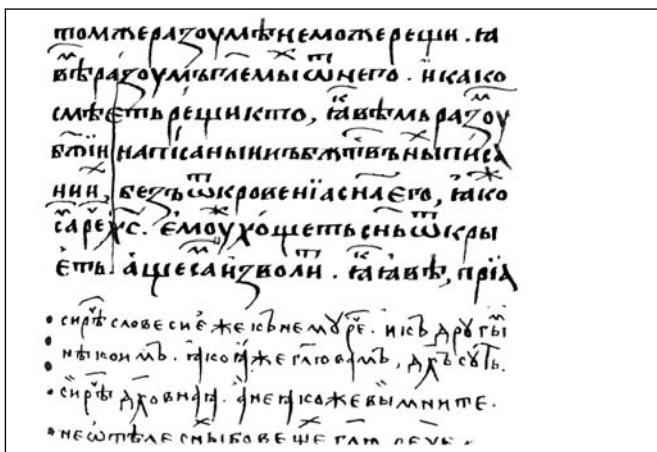 томжеразоумѣнеможерещи . ꙗ
вѣⷨразоумъгл҃емыѿнего . и҆како
смѣетьрещикто, ꙗⷦ҇вѣмьразоуⷨ
бж҃їинаписаныи бж҃твеныписа
нии, безъѿкровенїасн҃аего, ꙗ҆ко
саⷨрⷱ҇ехс҃. е҆моуⷤхощетьсн҃ъѿкры
е҆ть. а҆щесаⷨи҆зволиⷮ . ꙗⷦ҇ꙗ҆вѣ, прїа
• сирѣⷱ҇словесие҆жекънемꙋрⷱ҇е . икъдрꙋгыⷨ
нѣкоимъ . ꙗ҆коꙗ҆жегл҃ювамъ, дх҃ъсꙋть.
• сирѣⷱ҇дх҃овнаꙗ . а҆неꙗ҆кожевымните .
• неѡтѣлесныⷯбовеще гл҃ю